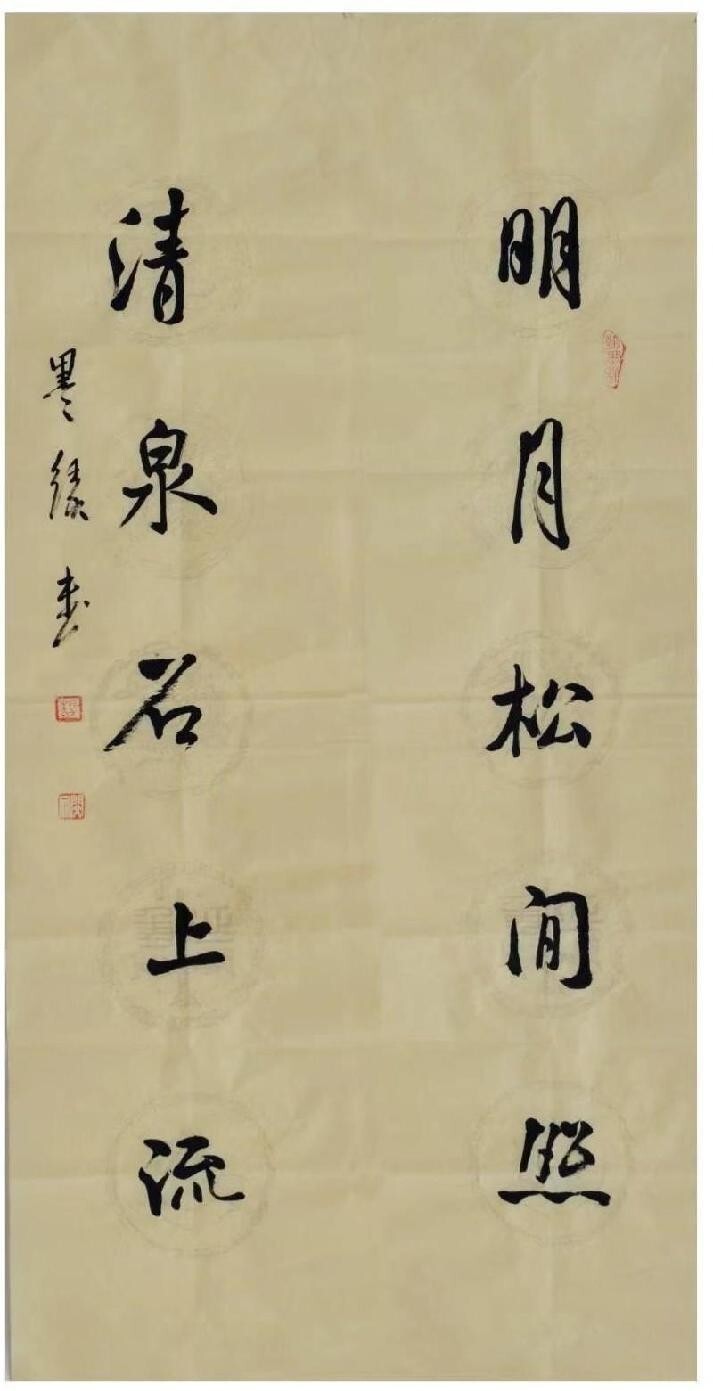 明月松间照
清泉石上流
墨缘书